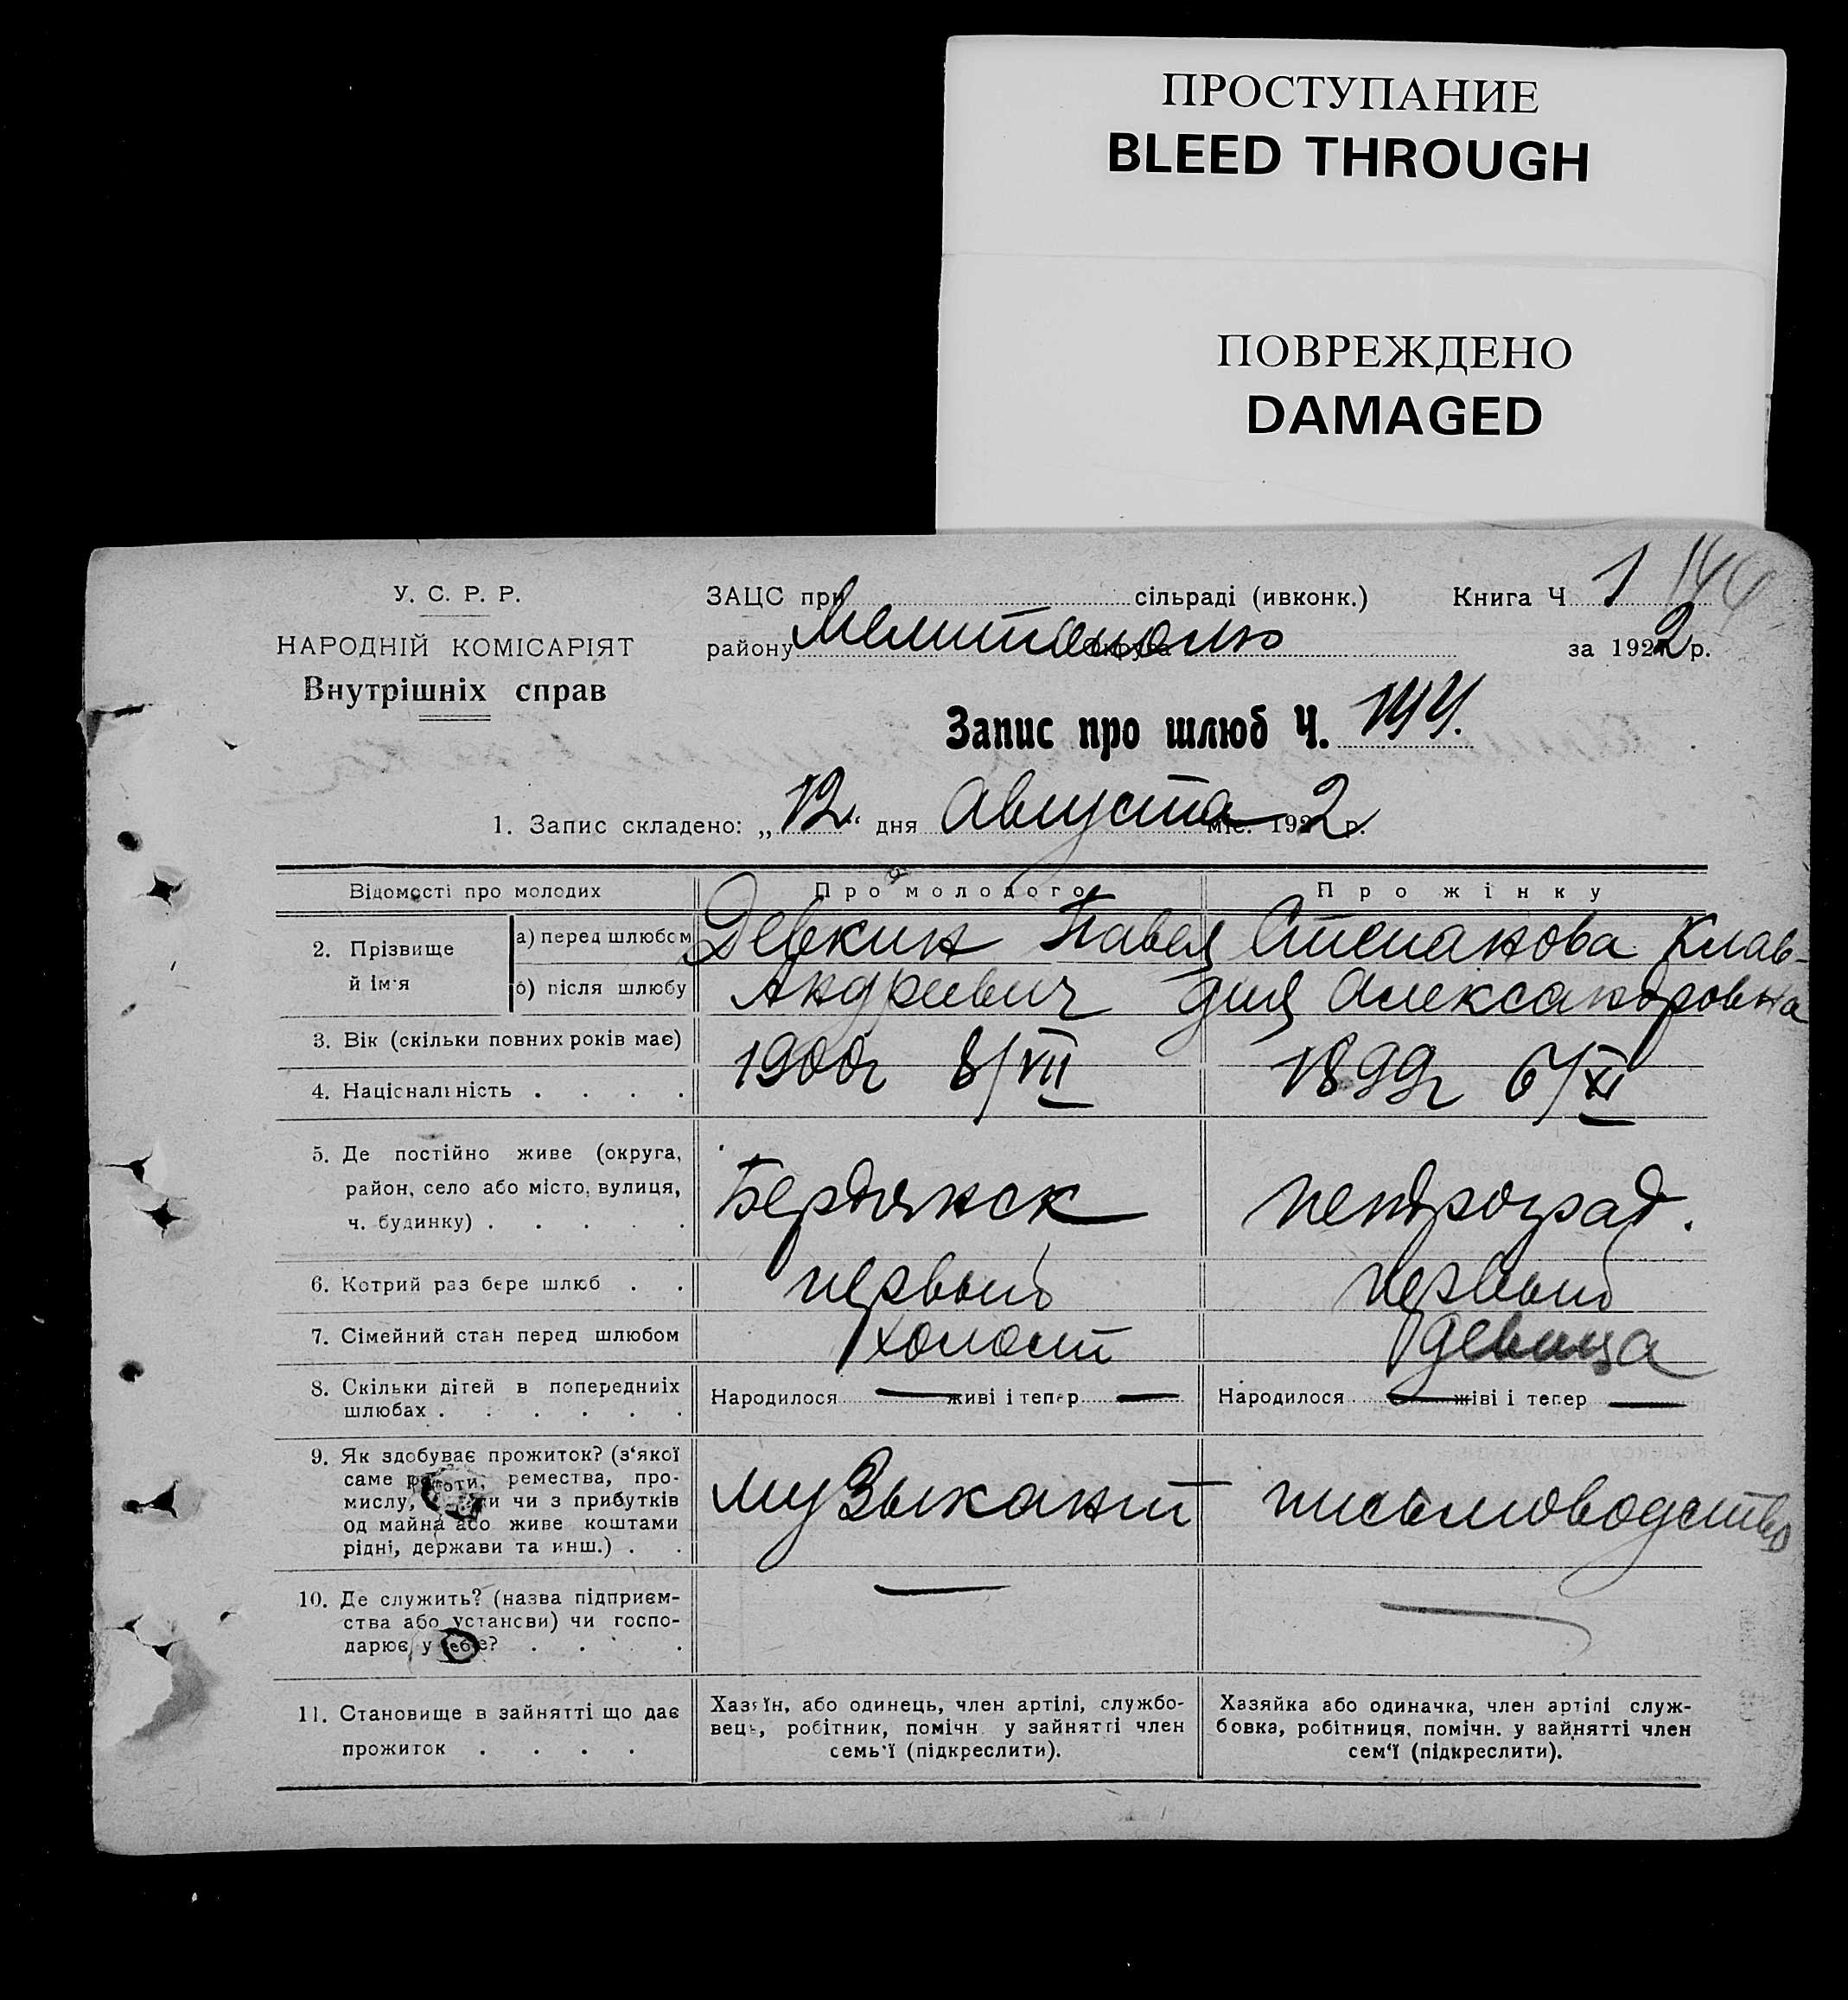 ПРОСТУПАНИЕ
BLEED THROUGH
ПОВРЕЖДЕНО
DAMAGED
У. С. Р. Р.
НАРОДНІЙ КОМІСАРІЯТ
Внутрішніх справ
ЗАЦС при сільраді (ивконк.) Книга Ч 1 144
району Мелитополю округа за 1922 р.
Запис про шлюб Ч. 144.
1. Запис складено: „12“ дня Августа міс. 1922 р.
Відомості про молодих Про молодого Про жінку
2. Прізвище й ім'я а) перед шлюбом Девкин Павел Степанова Клав-
б) після шлюбу Андреевич дия Александровна
3. Вік (скільки повних років має) 1900г 8/VII 1899г 6/XI
4. Національність . . . .
5. Де постійно живе (округа,
район, село або місто, вулиця, Бердянск Петроград.
ч. будинку) . . . . .
6. Котрий раз бере шлюб . . первый первый
7. Сімейний стан перед шлюбом холост девица
8. Скільки дітей в попередниіх Народилося — живі і тепер — Народилося — жіві і тепер —
шлюбах . . . . . .
9. Як здобуває прожиток? (з'якої
саме роботи, ремества, про-
мислу, чи з прибутків музыкант письмоводство
од майна або живе коштами
рідні, держави та инш.) . .
10. Де служить? (назва підприєм- — —
ства або установи) чи госпо-
дарює у себе? . . . .
11. Становище в зайнятті що дає
прожиток . . . .
Хазяїн, або одинець, член артілі, службо-
вець, робітник, помічн. у зайнятті член
семь'ї (підкреслити).
Хазяйка або одиначка, член артілі служ-
бовка, робітниця, помічн. у зайнятті член
сем'ї (підкреслити).